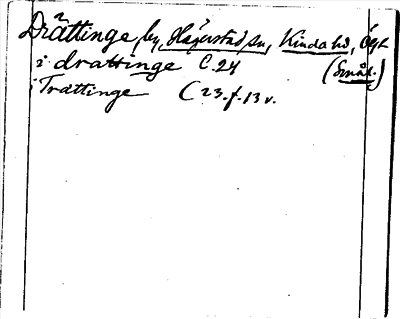 Drättinge, by, Hägerstad sn, Kinda hd, Ög.
i drattinge C. 24 (Smål.)
i Trættinge C 23. f. 13 v.